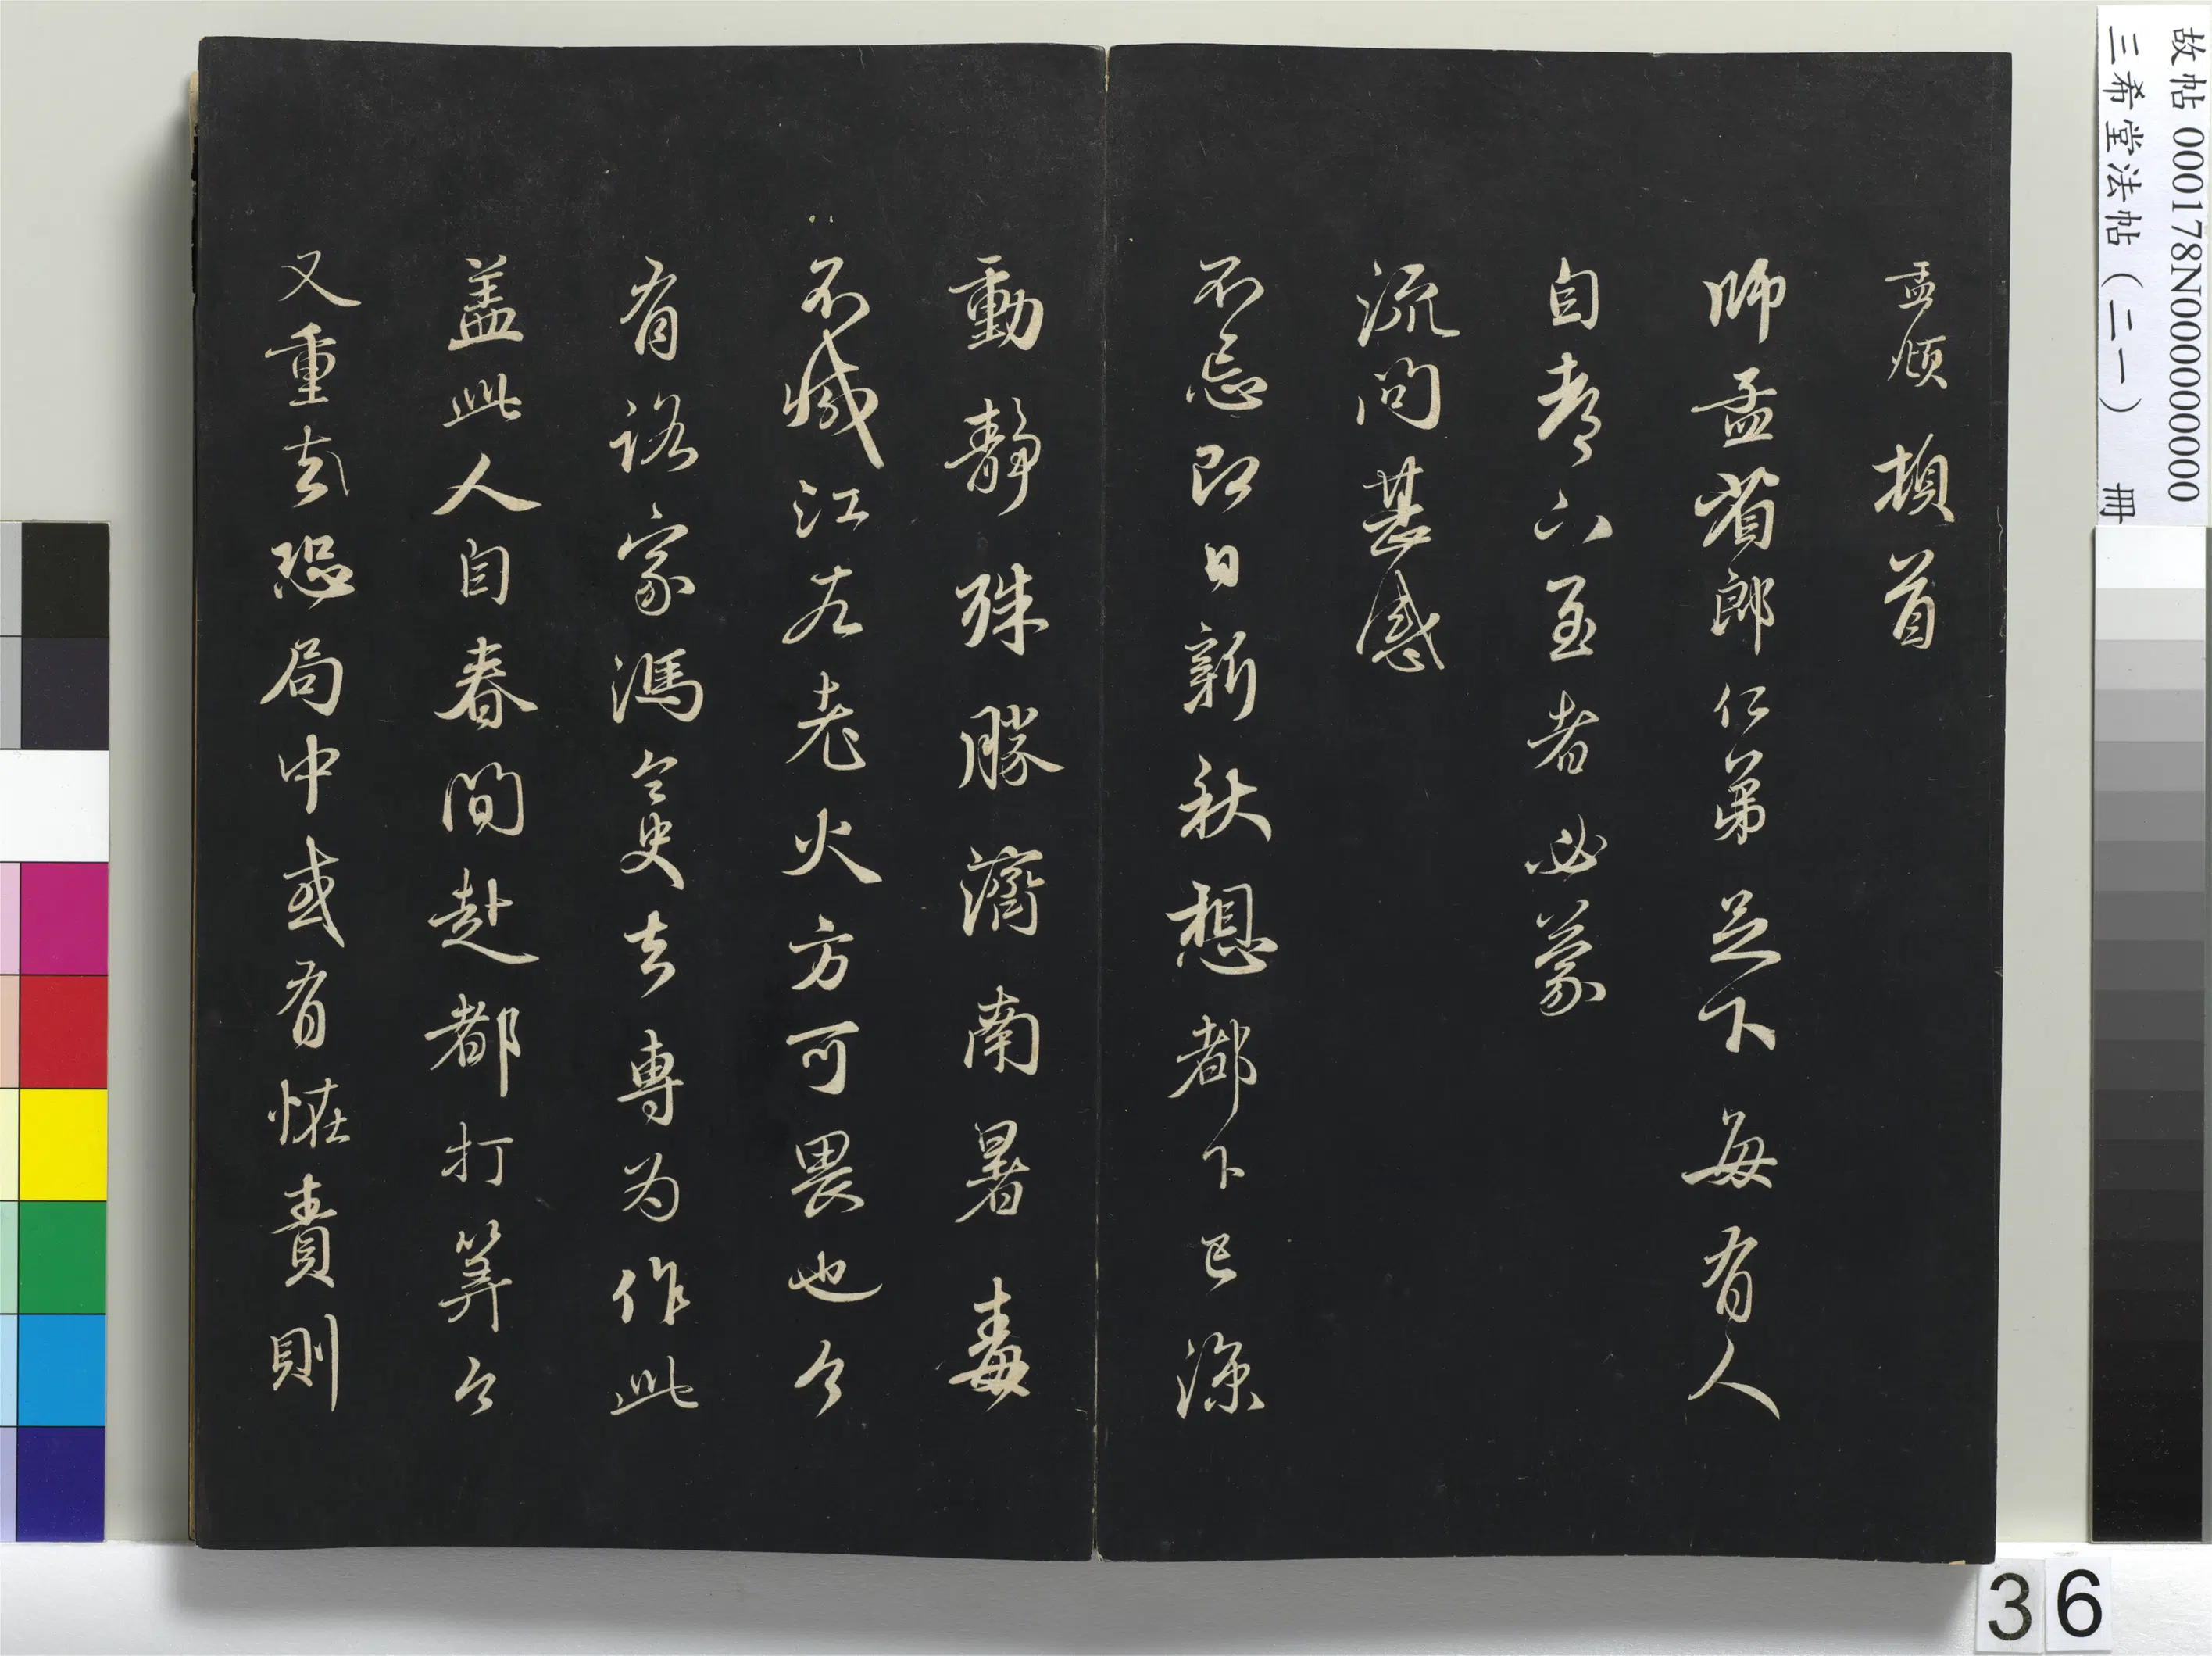 孟頫頓首
師孟省郎仁弟足下每有人
自都下至者必蒙
流問甚感
不忘即日新秋想都下已涼
動靜殊勝濟南暑毒
不減江左老火方可畏也今
有路家馮令史去專為作此
蓋此人自春間赴都打筭今
又重去恐局中或有怪責則
故帖 000178N000000000
三希堂法帖(二一) 冊
36